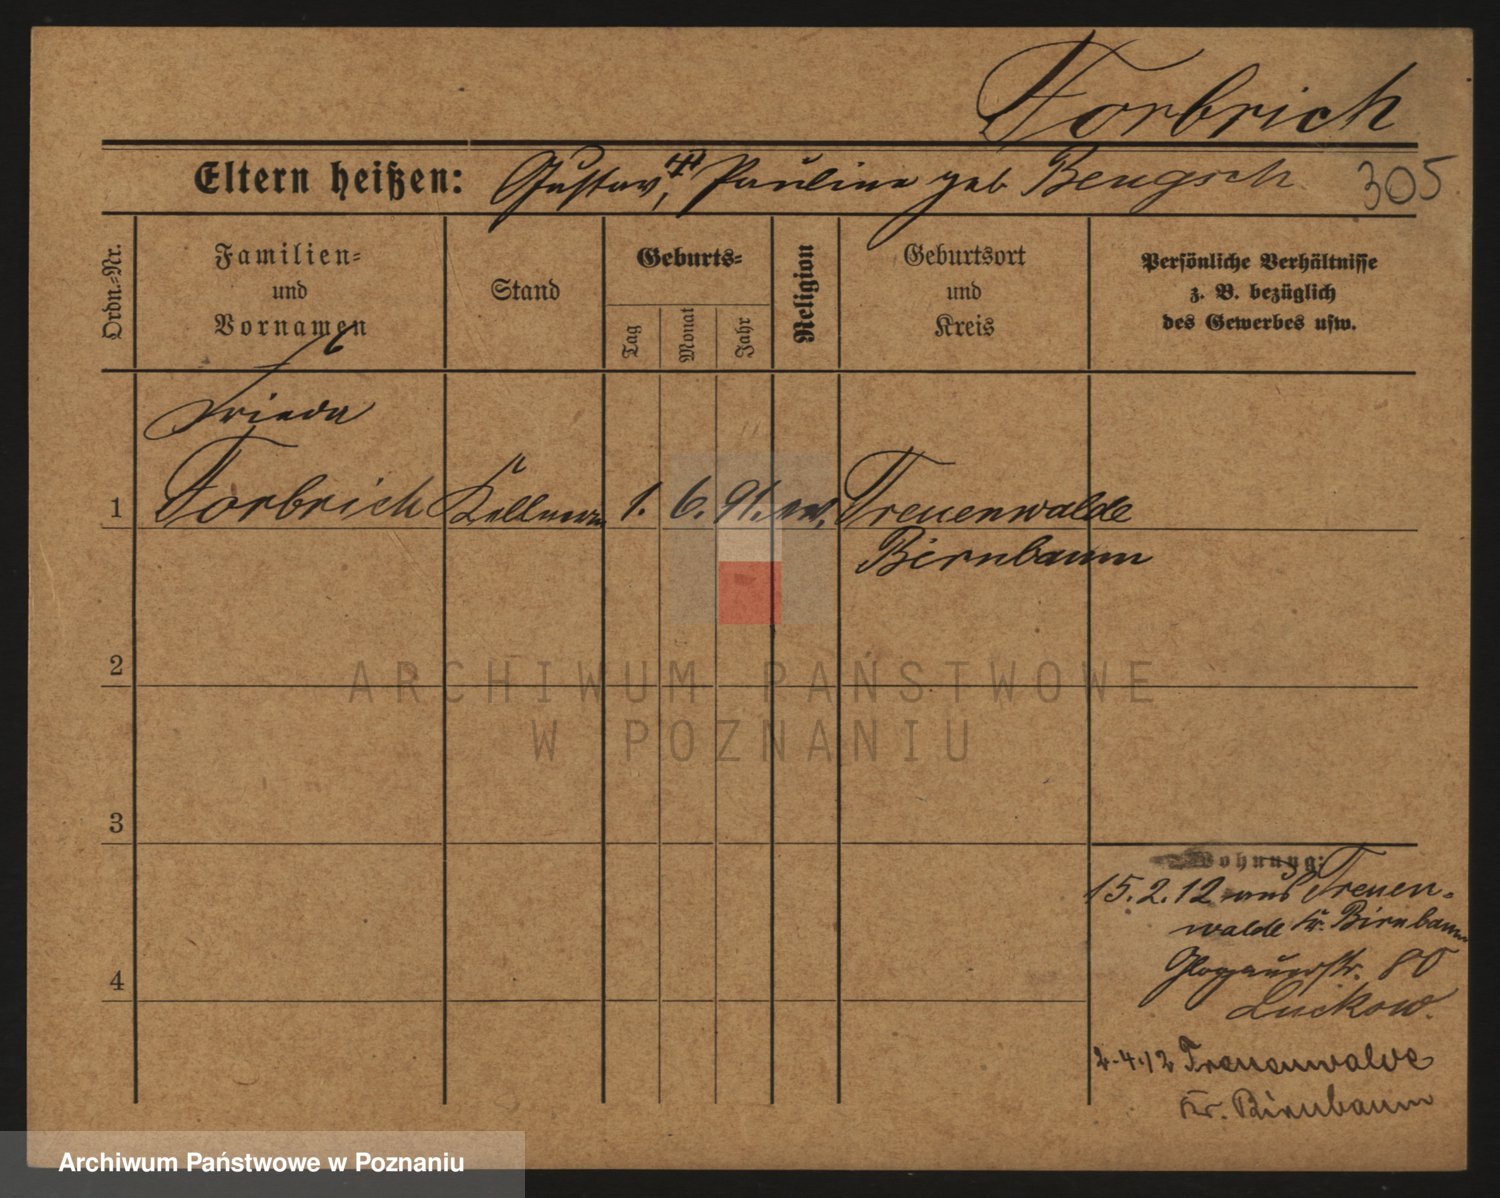 Forbrich
Eltern heißen: Gustav, Pauline geb Bengsch 305
Ordn.-Nr.
Familien-
und
Vornamen
Stand
Geburts-
Tag
Monat
Jahr
Religion
Geburtsort
und
Kreis
Persönliche Verhältnisse
z. B. bezüglich
des Gewerbes usw.
Frieda
1 Forbrich 1. 6. 91. ev. Treuenwalde
Birnbaum
2
ARCHIWUM PAŃSTWOWE
W POZNANIU
3
Wohnung:
15.2.12 aus Treuen-
walde Kr. Birnbaum
Glogauerstr. 80
4
Luckow.
2.4.12 Treuenwalde
Kr. Birnbaum
Archiwum Państwowe w Poznaniu